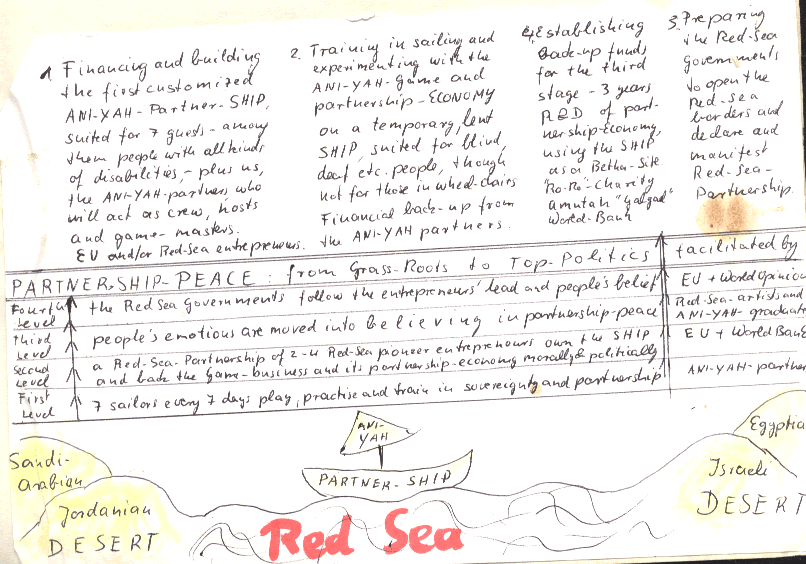 1. Financing and building
the first customized
ANI-YAH-Partner-SHIP,
suited for 7 guests - among
them people with all kinds
of disabilities, - plus us,
the ANI-YAH-partners, who
will act as crew, hosts
and game-masters.
EU and/or Red-Sea entrepreneurs.
2. Training in sailing and
experimenting with the
ANI-YAH-Game and
partnership-ECONOMY
on a temporary, lent
SHIP, suited for blind,
deaf etc. people, though
not for those in wheel-chairs
Financial back-up from
the ANI-YAH partners.
Establishing
back-up funds
for the third
stage - 3 years
R&D of part-
nership-economy,
using the SHIP
as a Betha-Site
"Ro-Ro"-Charity
amutah "Galgal"
World-Bank
3. Preparing
the Red-Sea
governments
to open the
Red-Sea
borders and
declare and
manifest
Red-Sea-
Partnership.
PARTNER-SHIP-PEACE: from Grass-Roots to Top-Politics
facilitated by
Fourth Level
the Red Sea Governments follow the entrepreneurs' lead and people's belief
EU + World Opinion
Third Level
people's emotions are moved into believing in partnership-peace
Red-Sea-artists and
ANI-YAH-graduate
Second Level
a Red-Sea-Partnership of 2-4 Red-Sea pioneer entrepreneurs own the SHIP
and back the game-business and its partnership-economy morally & politically
EU + World Bank
First Level
7 sailors every 7 days play, practise and train in sovereignty and partnership
ANI-YAH-partner
ANI-
YAH
PARTNER-SHIP
Saudi-
arabian
Jordanian
DESERT
Egyptian
Israeli
DESERT
Red Sea